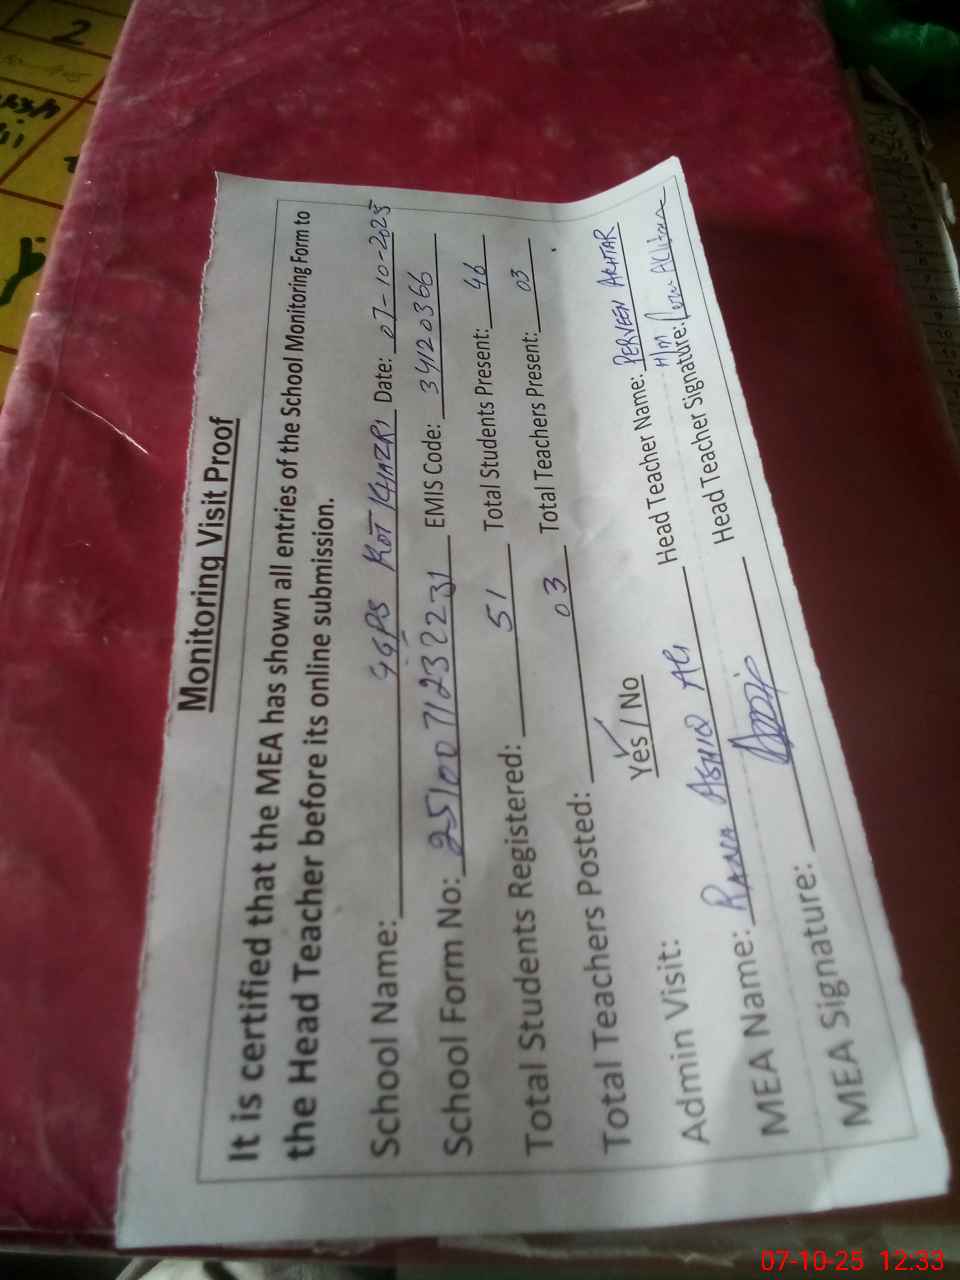 Monitoring Visit Proof
It is certified that the MEA has shown all entries of the School Monitoring Form to
the Head Teacher before its online submission.
School Name: GGPS KOT KHAZRI Date: 07-10-2025
School Form No: 251007123 2231 EMIS Code: 34120366
Total Students Registered: 51 Total Students Present: 46
Total Teachers Posted: 03 Total Teachers Present: 03
Admin Visit: Yes / No
MEA Name: RANA ASHIQ Ali Head Teacher Name: PERVEEN AKHTAR
MEA Signature: Head Teacher Signature: H/M
2
07-10-25 12:33